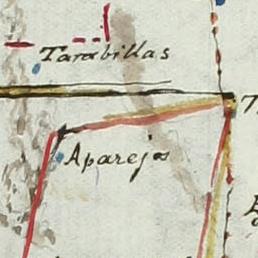 Tarabillas
Aparejo